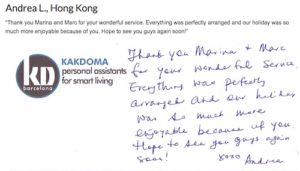 Andrea L., Hong Kong
"Thank you Marina and Marc for your wonderful service. Everything was perfectly arranged and our holiday was so
much more enjoyable because of you. Hope to see you guys again soon!"
KD
barcelona
KAKDOMA
personal assistants
for smart living
Thank you Marina & Marc
for your wonderful service.
Everything was perfectly
arranged and our holiday
was so much more
enjoyable because of you.
Hope to see you guys again
soon!
xoxo Andrea